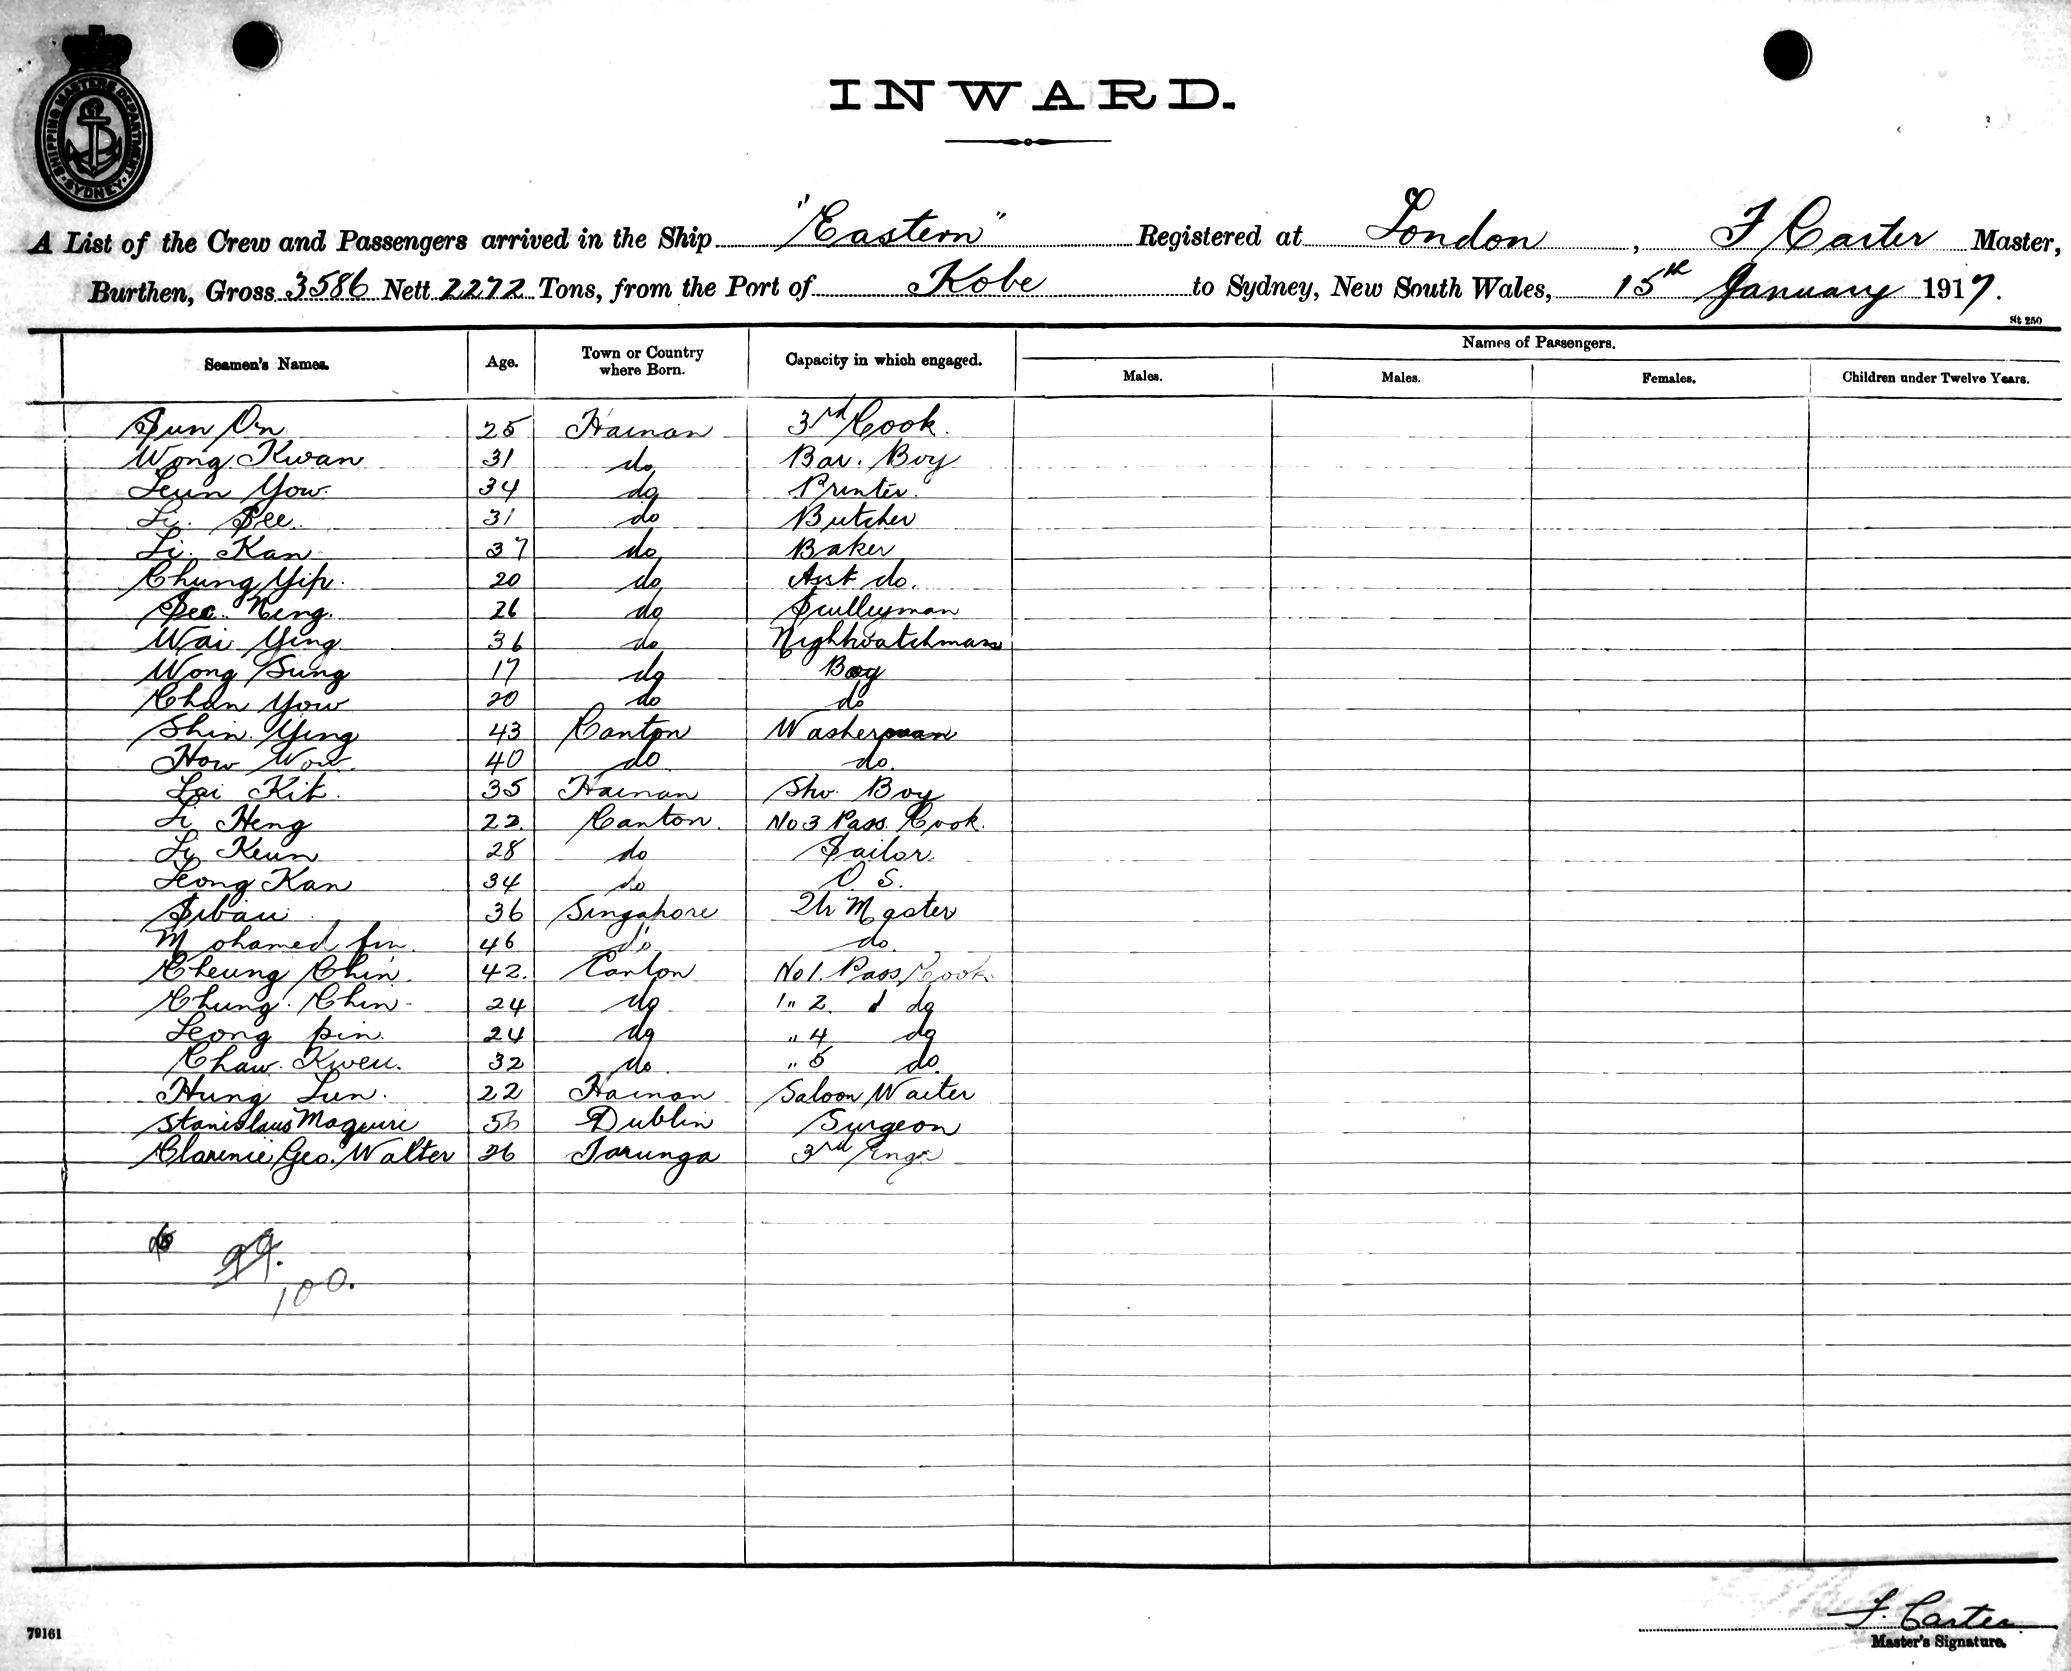 SHIPPING MASTERS DEPARTMENT SYDNEY
INWARD.
A List of the Crew and Passengers arrived in the Ship "Eastern" Registered at London, F Carter Master,
Burthen, Gross 3586 Nett 2272 Tons, from the Port of Kobe to Sydney, New South Wales, 15th January 1917.
St 250
Seamen's Names. Age. Town or Country where Born. Capacity in which engaged. Names of Passengers.
Males. Males. Females. Children under Twelve Years.
Sun On 25 Hainan 3rd Cook.
Wong Kwan 31 do Bar. Boy
Leun Yow. 34 do Printer.
Li. See. 31 do Butcher
Li. Kan 37 do Baker
Chung Yip. 20 do Asst do.
See Neng. 26 do Sculleyman
Wai Ying 36 do Nightwatchman
Wong Sung 17 do Boy
Chan Yow 20 do do
Shin Ying 43 Canton Washerman
How Wow. 40 do do.
Lai Kit. 35 Hainan Shv. Boy
Li Heng 22. Canton. No 3 Pass. Cook.
Ly Keun 28 do Sailor.
Leong Kan 34 do O. S.
Sibau 36 Singapore Qtr Master
Mohamed fin. 46 do do.
Cheung Chin. 42. Canton No 1. Pass Cook.
Chung. Chin 24 do 1" 2. do
Leong pin. 24 do " 4 do
Chaw. Kweu. 32 do " 5 do.
Hung Lun. 22 Hainan Saloon Waiter
Stanislaus Maguire Dublin Surgeon
Clarence Geo. Walter 26 Tarunga 3rd Engr
99.
100.
F. Carter
Master's Signature.
79161